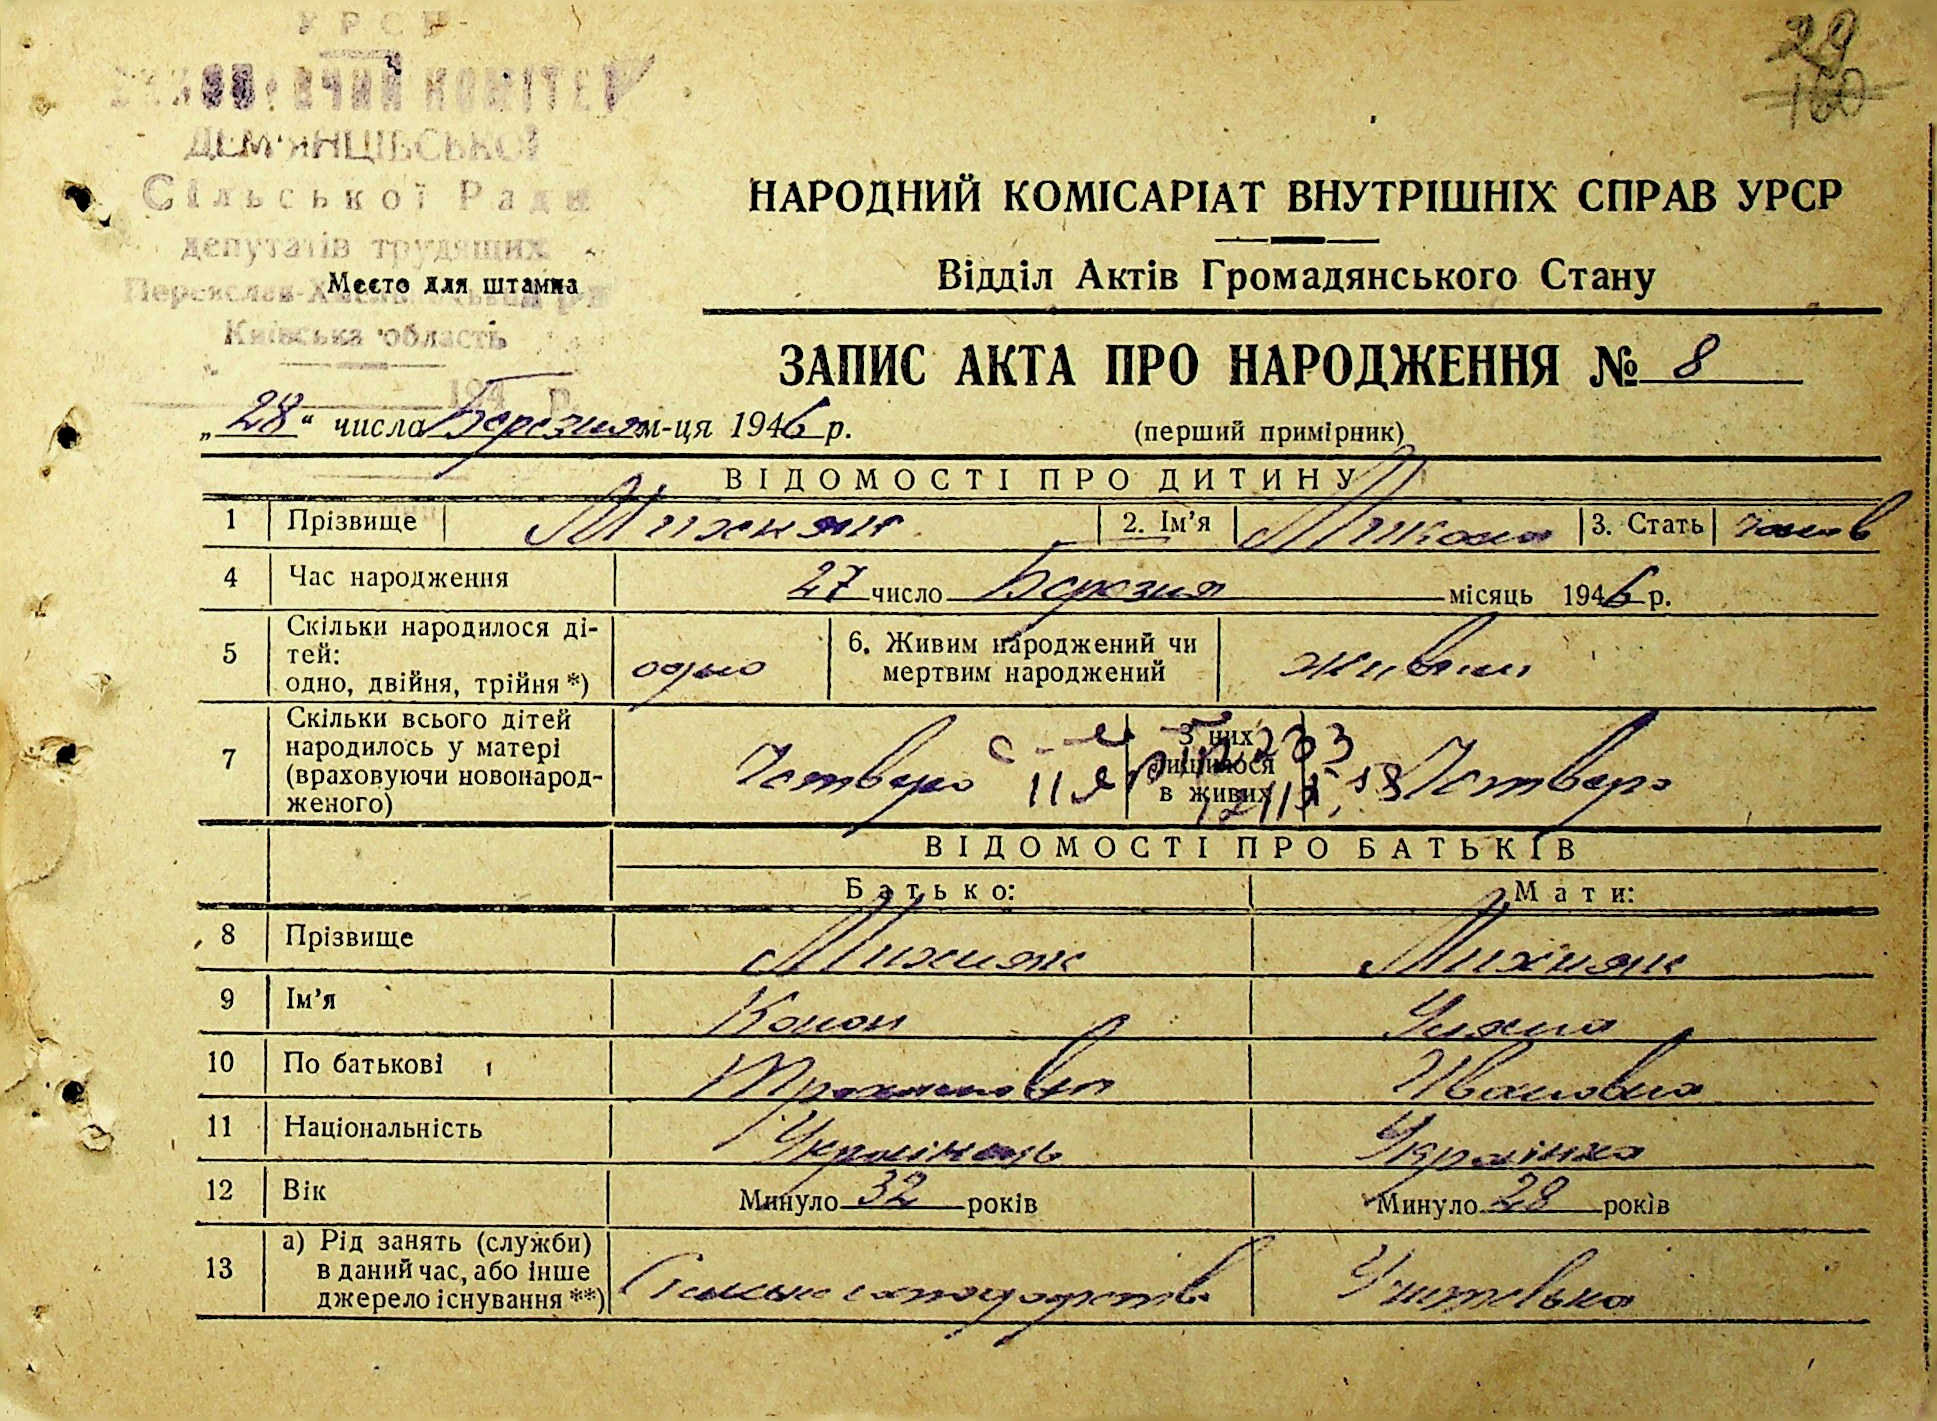 УРСР
ВИКОНАВЧИЙ КОМІТЕТ
ДЕМ'ЯНЦІВСЬКОЇ
Сільської Ради
депутатів трудящих
Київська область
194 р.
Место для штампа
29
160
НАРОДНИЙ КОМІСАРІАТ ВНУТРІШНІХ СПРАВ УРСР
Відділ Актів Громадянського Стану
ЗАПИС АКТА ПРО НАРОДЖЕННЯ № 8
„28“ числа Березня м-ця 1946 р.
(перший примірник)
ВІДОМОСТІ ПРО ДИТИНУ
1 Прізвище Михняк 2. Ім'я Микола 3. Стать чолов
4 Час народження 27 число Березня місяць 1946 р.
5 Скільки народилося ді-
тей:
одно, двійня, трійня *) одно
6. Живим народжений чи
мертвим народжений живим
7 Скільки всього дітей
народилось у матері
(враховуючи новонарод-
женого) Четверо
З них
лишилося
в живих Четверо
ВІДОМОСТІ ПРО БАТЬКІВ
Батько: Мати:
8 Прізвище Михняк Михняк
9 Ім'я Конон Уляна
10 По батькові Івановна
11 Національність Українець Українка
12 Вік Минуло 32 років Минуло 28 років
13 а) Рід занять (служби)
в даний час, або інше
джерело існування **) Учителька